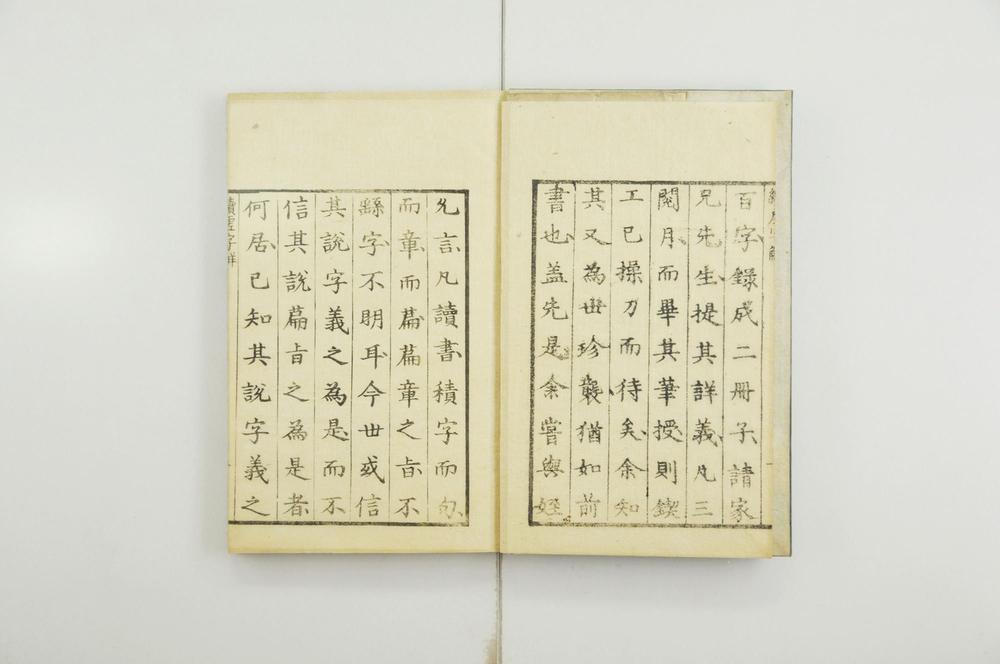 百字錄成二冊子請家
兄先生提其詳義凡三
閱月而畢其筆授則鍥
工已操刀而待矣余知
其又為世珍襲猶如前
書也盖先是余嘗與姪
允言凡讀書積字而句
而章而篇篇章之旨不
繇字不明耳今世或信
其說字義之為是而不
信其說篇旨之為是者
何居已知其說字義之
續虛字解